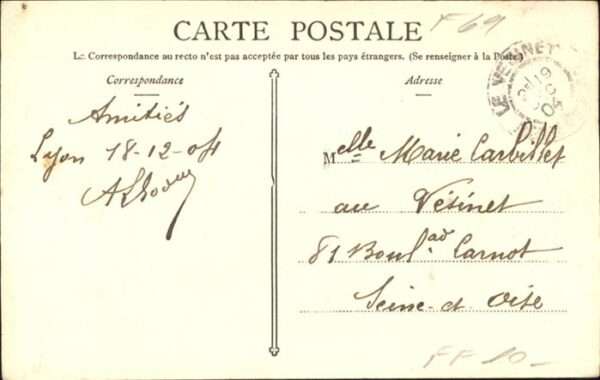 CARTE POSTALE
F 69
La Correspondance au recto n'est pas acceptée par tous les pays étrangers. (Se renseigner à la Poste)
Correspondance
Adresse
LE VESINET
19
04
Amitiés
Lyon 18-12-04
Melle Marie Carbillet
au Vésinet
81 Boul.ad Carnot
Seine-et Oise
FF 10-